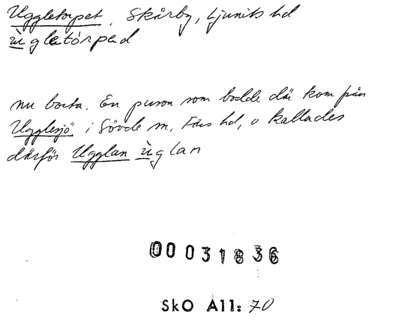 Uggletorpet, Skårby, Ljunits hd
ùgletórped
nu borta. En person som bodde där kom från
Ugglesjö i Sövde sn, Färs hd, o kallades
därför Ugglan ùglan
00031836
SkO All: 70